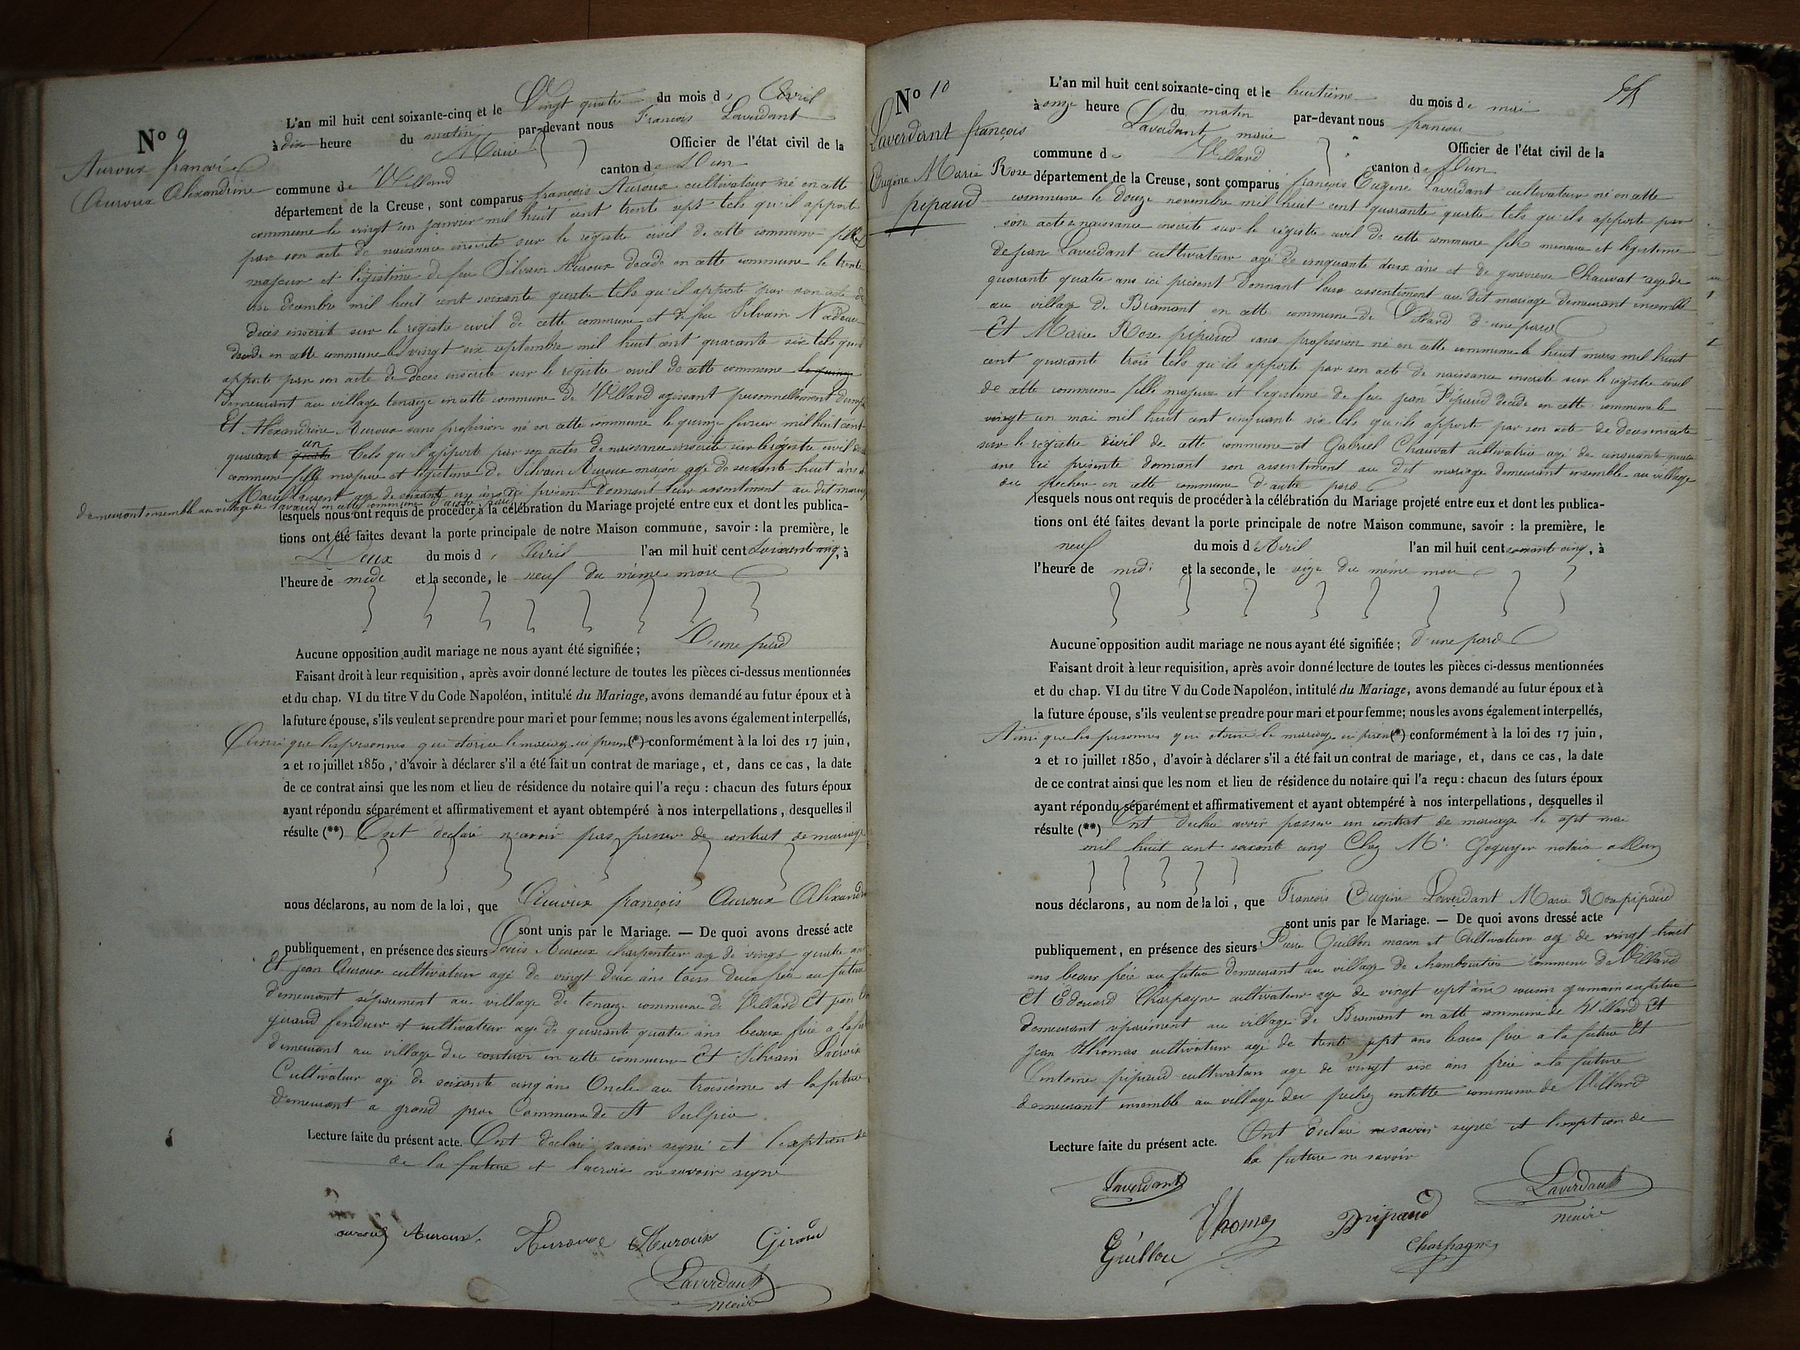 No 9
Auroux françois
Auroux Alexandrine
L'an mil huit cent soixante-cinq et le Vingt quatre du mois d Avril
à dix heure du matin par-devant nous François Laverdant
Maire Officier de l'état civil de la
commune de Villard canton de Dun
département de la Creuse, sont comparus françois Auroux cultivateur né en cette
commune le vingt un janvier mil huit cent trente sept tels qu'il apporte
par son acte de naissance inscrite sur le registre civil de cette commune fils
majeur et légitime de feu Silvain Auroux decede en cette commune le trente
un Decembre mil huit cent soixante quatre tels qu'il apporte par son acte de
deces inscrit sur le registre civil de cette commune et de feu Silvain Nadeau
decede en cette commune le vingt six septembre mil huit cent quarante six tels qu'il
apporte par son acte de deces inscrite sur le registre civil de cette commune
demeurant au village tenaize en cette commune de Villard agissant personnellement d'une part
Et Alexandrine Auroux sans profession né en cette commune le quinze fevrier mil huit cent
quarant un tels qu'il apporte par son actes de naissance inscrit sur le registre civil de
commune fille majeure et légitime de Silvain Auroux maçon agé de soixante huit ans
Marie agé de soixante ans ici present Donnant leur assentiment au dit mariage
demeurant ensemble au village de en cette commune d'autre part
lesquels nous ont requis de procéder à la célébration du Mariage projeté entre eux et dont les publica-
tions ont été faites devant la porte principale de notre Maison commune, savoir : la première, le
Deux du mois d Avril l'an mil huit cent soixante cinq, à
l'heure de midi et la seconde, le neuf du même moi
Aucune opposition audit mariage ne nous ayant été signifiée ; D'une pard
Faisant droit à leur requisition, après avoir donné lecture de toutes les pièces ci-dessus mentionnées
et du chap. VI du titre V du Code Napoléon, intitulé du Mariage, avons demandé au futur époux et à
la future épouse, s'ils veulent se prendre pour mari et pour femme; nous les avons également interpellés,
Ainsi que les personnes qui otorise le mariage ici presen (*) conformément à la loi des 17 juin,
2 et 10 juillet 1850, d'avoir à déclarer s'il a été fait un contrat de mariage, et, dans ce cas, la date
de ce contrat ainsi que les nom et lieu de résidence du notaire qui l'a reçu : chacun des futurs époux
ayant répondu séparément et affirmativement et ayant obtempéré à nos interpellations, desquelles il
résulte (**) Ont declaré n'avoir pas passer de contrat de mariage
nous déclarons, au nom de la loi, que Auroux françois Auroux Alexandrine
sont unis par le Mariage. — De quoi avons dressé acte
publiquement, en présence des sieurs Louis Auroux charpentier agé de vingt quatre ans
Et jean Auroux cultivateur agé de vingt deux ans tous deux frère au futur
demeurant séparement au village de tenaize commune de Villard Et
fendeur et cultivateur agé de quarante quatre ans beaux frère a la future
demeurant au village du couture en cette commune Et Silvain Lacroix
Cultivateur agé de soixante cinq ans Oncle au troisième et la future
demeurant a grand prox Commune de St Sulpice
Lecture faite du présent acte. Ont declaré savoir signé et l'exeption de
de la future et lacroix ne savoir signé
Auroux Auroux Auroux Girard
Laverdant
maire
55
No 10
Laverdant françois
Eugène Marie Rose
pipaud
L'an mil huit cent soixante-cinq et le huitième du mois de mai
à onze heure du matin par-devant nous francois
Laverdant maire Officier de l'état civil de la
commune d Villard canton de Dun
département de la Creuse, sont comparus françois Eugene Laverdant cultivateur né en cette
commune le Douze novembre mil huit cent quarante quatre tels qu'ils apporte par
son acte naissance inscrite sur le registre civil de cette commune fils mineur et légitime
de jean Laverdant cultivateur agé de cinquante deux ans et de genevieve Chauvat agé de
quarante quatre ans ici présent Donnant leur assentiment au dit mariage demeurant ensemble
au village de Bramant en cette commune de Villard d'une pard
Et Marie Rose pipaud sans profession né en cette commune le huit mars mil huit
cent quarante trois tels qu'ils apporte par son acte de naissance inscrite sur le registre civil
de cette commune fille majeur et légitime de feu jean Pipaud decede en cette commune le
vingt un mai mil huit cent cinquante six tels qu'ils apporte par son acte de deces inscrite
sur le registre civil de cette commune et Gabriel Chauvat cultivatrice agé de cinquante
ans ici présente donnant son assentiment au dit mariage demeurant ensemble au village
du puchez en cette commune d'autre pard
lesquels nous ont requis de procéder à la célébration du Mariage projeté entre eux et dont les publica-
tions ont été faites devant la porte principale de notre Maison commune, savoir : la première, le
neuf du mois d Avril l'an mil huit cent soixante cinq, à
l'heure de midi et la seconde, le seize du même moi
Aucune opposition audit mariage ne nous ayant été signifiée ; d'une pard
Faisant droit à leur requisition, après avoir donné lecture de toutes les pièces ci-dessus mentionnées
et du chap. VI du titre V du Code Napoléon, intitulé du Mariage, avons demandé au futur époux et à
la future épouse, s'ils veulent se prendre pour mari et pour femme; nous les avons également interpellés,
Ainsi que les personnes qui otorise le mariage ici presen (*) conformément à la loi des 17 juin,
2 et 10 juillet 1850, d'avoir à déclarer s'il a été fait un contrat de mariage, et, dans ce cas, la date
de ce contrat ainsi que les nom et lieu de résidence du notaire qui l'a reçu : chacun des futurs époux
ayant répondu séparément et affirmativement et ayant obtempéré à nos interpellations, desquelles il
résulte (**) Ont declaré avoir passer un contrat de mariage le sept mai
mil huit cent soixante cinq Chez Mr Goguyer notaire a Dun
nous déclarons, au nom de la loi, que Francois Eugène Laverdant Marie Rose pipaud
sont unis par le Mariage. — De quoi avons dressé acte
publiquement, en présence des sieurs Pierre Guillon macon et Cultivateur agé de vingt huit
ans beaux frère au futur demeurant au village de chamboutier commune de Villard
Et Edouard Charpagne cultivateur age de vingt sept ans cousin germain au futur
demeurant séparément au village de Bramant en cette commune de Villard Et
jean Thomas cultivateur agé de trente sept ans beaux frère a la future Et
Antoine pipaud cultivateur age de vingt six ans frère a la future
demeurant ensemble au village du puchez en cette commune de Villard
Lecture faite du présent acte. Ont declare savoir signé et l'exeption de
la future ne savoir
Laverdant Laverdant
maire
Thomas Pipaud
Guillon Charpagne